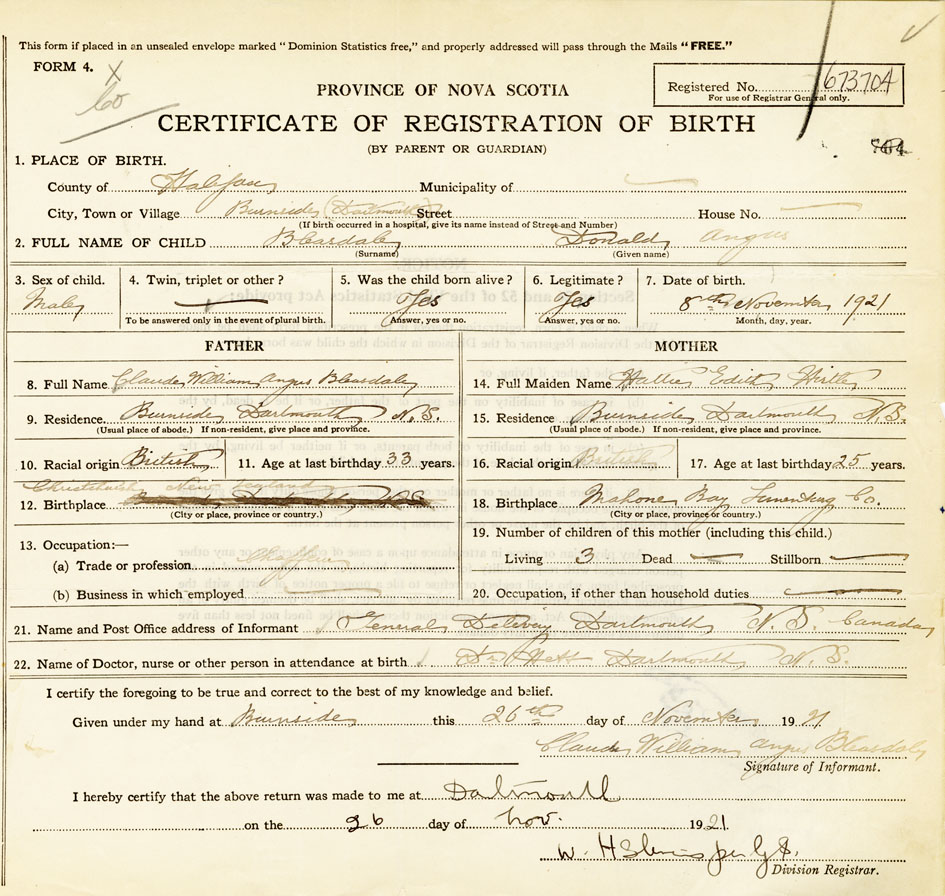 This form if placed in an unsealed envelope marked “Dominion Statistics free,” and properly addressed will pass through the Mails “FREE.”
FORM 4.
X
Registered No. 673704
For use of Registrar General only.
PROVINCE OF NOVA SCOTIA
CERTIFICATE OF REGISTRATION OF BIRTH
(BY PARENT OR GUARDIAN)
1. PLACE OF BIRTH.
County of Halifax Municipality of
City, Town or Village Burnside (Dartmouth) Street House No.
(If birth occurred in a hospital, give its name instead of Street and Number)
2. FULL NAME OF CHILD Bleasdale Donald Angus
(Surname) (Given name)
3. Sex of child. 4. Twin, triplet or other? 5. Was the child born alive? 6. Legitimate? 7. Date of birth.
Male Yes Yes 8th November 1921
To be answered only in the event of plural birth. Answer, yes or no. Answer, yes or no. Month, day, year.
FATHER MOTHER
8. Full Name Claude William Angus Bleasdale 14. Full Maiden Name Hattie Edith Hirtle
9. Residence Burnside Dartmouth N.S. 15. Residence Burnside Dartmouth N.S.
(Usual place of abode.) If non-resident, give place and province. (Usual place of abode.) If non-resident, give place and province.
10. Racial origin British 11. Age at last birthday 33 years. 16. Racial origin British 17. Age at last birthday 25 years.
Christchurch New Zealand
12. Birthplace 18. Birthplace Mahone Bay Lunenburg Co.
(City or place, province or country.) (City or place, province or country.)
13. Occupation:— 19. Number of children of this mother (including this child.)
(a) Trade or profession Living 3 Dead Stillborn
(b) Business in which employed 20. Occupation, if other than household duties
21. Name and Post Office address of Informant General Delivery Dartmouth N.S. Canada
22. Name of Doctor, nurse or other person in attendance at birth Dr Dartmouth N.S.
I certify the foregoing to be true and correct to the best of my knowledge and belief.
Given under my hand at Burnside this 26th day of November 1921
Claude William Angus Bleasdale
Signature of Informant.
I hereby certify that the above return was made to me at Dartmouth
on the 26 day of Nov. 1921
W. H
Division Registrar.